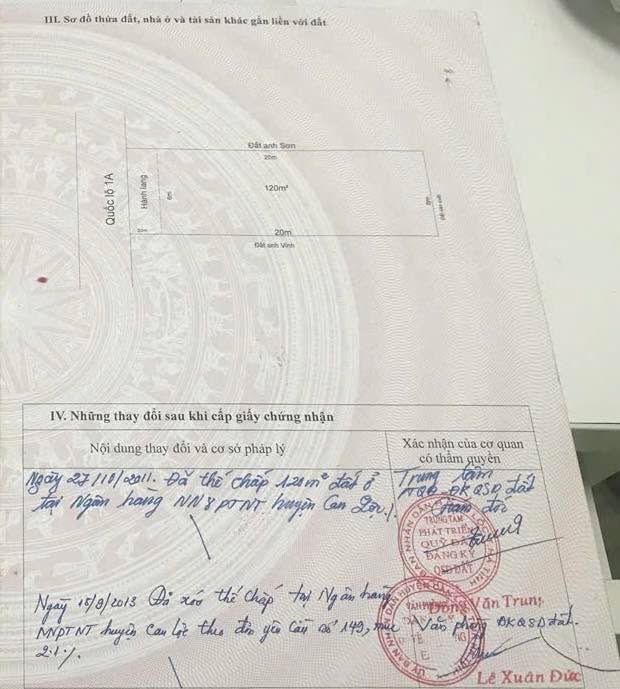 III. Sơ đồ thửa đất, nhà ở và tài sản khác gắn liền với đất
Đất anh Sơn
20m
Quốc lộ 1A
Hành lang
6m
120m²
6m
20m
20m
Đất anh Vinh
IV. Những thay đổi sau khi cấp giấy chứng nhận
Nội dung thay đổi và cơ sở pháp lý
Xác nhận của cơ quan
có thẩm quyền
Ngày 27/10/2011. Đã thế chấp 120m² đất ở
tại Ngân hàng NN&PTNT huyện Can Lộc./.
Trung tâm
PTQĐ ĐKQSD đất
Giám đốc
TRUNG TÂM
PHÁT TRIỂN
QUỸ ĐẤT
ĐĂNG KÝ
QSD ĐẤT
Đồng Văn Trung
Ngày 15/8/2013 Đã xóa thế chấp tại Ngân hàng
NNPTNT huyện Can Lộc theo đơn yêu cầu số 149, mục
2.1./.
Văn phòng ĐKQSD đất
Lê Xuân Đức